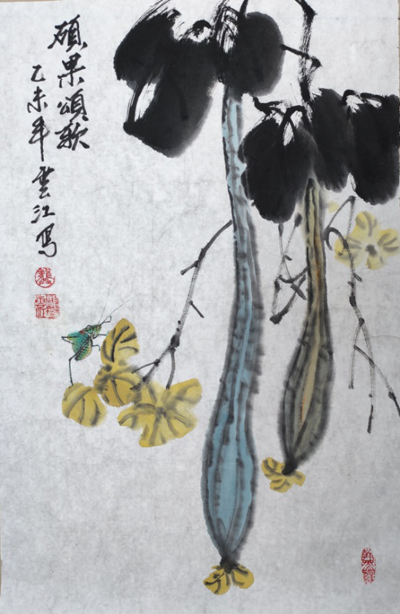 碩果頌歌
乙未年雲江寫